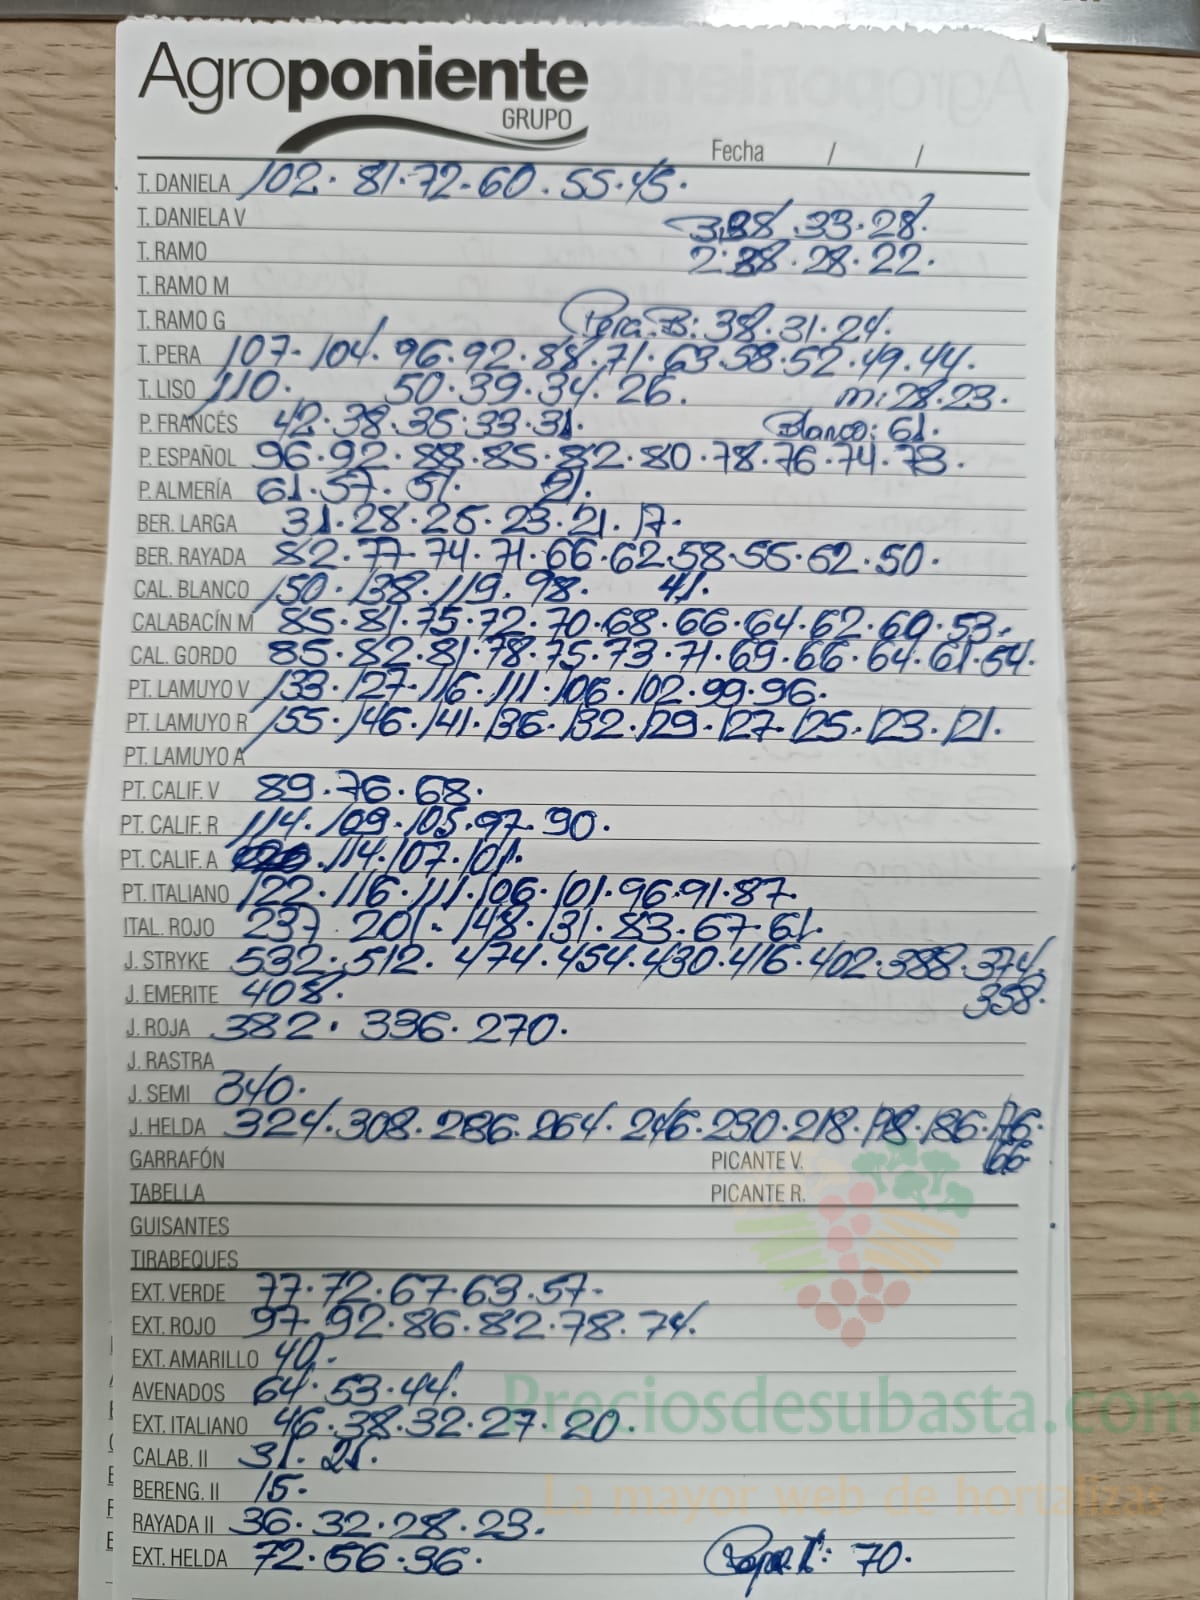 Agroponiente
GRUPO
Fecha / /
T. DANIELA 102. 81. 72. 60. 55. 45.
T. DANIELA V 33. 28.
T. RAMO 28. 22.
T. RAMO M
T. RAMO G Pera B: 38. 31. 24.
T. PERA 107. 104. 96. 92. 88. 71. 63. 58. 52. 49. 44.
T. LISO 110. 50. 39. 34. 26. m: 28. 23.
P. FRANCÉS 42. 38. 35. 33. 31. Blanco: 61.
P. ESPAÑOL 96. 92. 88. 85. 82. 80. 78. 76. 74. 73.
P. ALMERÍA 61. 57. 51. 21.
BER. LARGA 31. 28. 25. 23. 21. 17.
BER. RAYADA 82. 77. 74. 71. 66. 62. 58. 55. 52. 50.
CAL. BLANCO 150. 138. 119. 98. 41.
CALABACÍN M 85. 81. 75. 72. 70. 68. 66. 64. 62. 60. 53.
CAL. GORDO 85. 82. 81. 78. 75. 73. 71. 69. 66. 64. 61. 54.
PT. LAMUYO V 133. 127. 116. 111. 106. 102. 99. 96.
PT. LAMUYO R 155. 146. 141. 136. 132. 129. 127. 125. 123. 121.
PT. LAMUYO A
PT. CALIF. V 89. 76. 68.
PT. CALIF. R 114. 109. 105. 97. 90.
PT. CALIF. A . 114. 107. 101.
PT. ITALIANO 122. 116. 111. 106. 101. 96. 91. 87.
ITAL. ROJO 237. 201. 148. 131. 83. 67. 61.
J. STRYKE 532. 512. 474. 454. 430. 416. 402. 388. 374.
J. EMERITE 408. 358.
J. ROJA 382. 336. 270.
J. RASTRA
J. SEMI 340.
J. HELDA 324. 308. 286. 264. 246. 230. 218. 198. 186. 176.
166.
GARRAFÓN PICANTE V.
TABELLA PICANTE R.
GUISANTES
TIRABEQUES
EXT. VERDE 77. 72. 67. 63. 57.
EXT. ROJO 97. 92. 86. 82. 78. 74.
EXT. AMARILLO 40.
AVENADOS 64. 53. 44.
EXT. ITALIANO 46. 38. 32. 27. 20.
CALAB. II 31. 21.
BERENG. II 15.
RAYADA II 36. 32. 28. 23.
EXT. HELDA 72. 56. 36. 70.
Preciosdesubasta.com
La mayor web de hortalizas